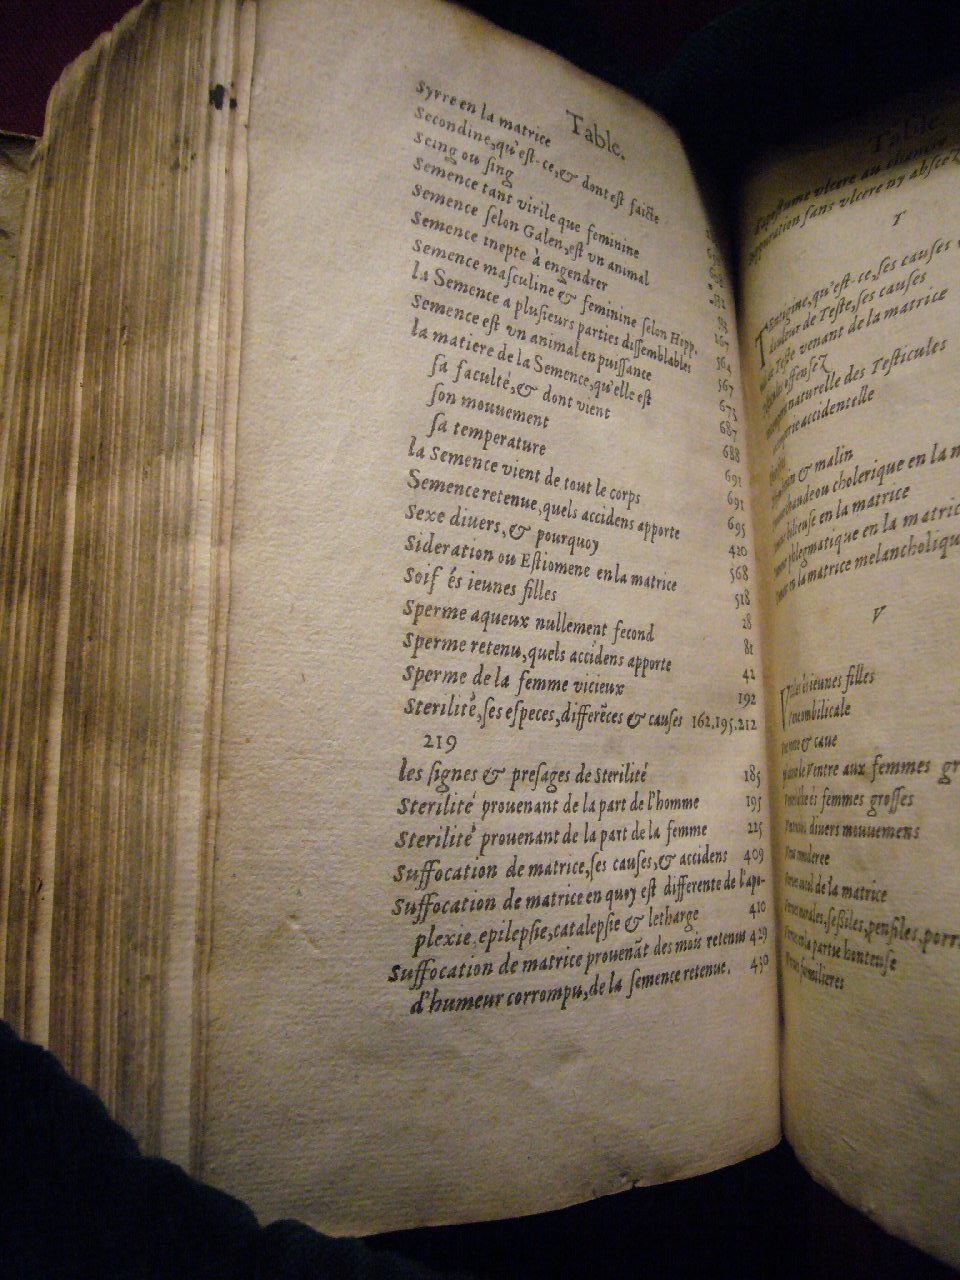 Table.
Syrre en la matrice
Secondine, qu'est-ce, & dont est faicte
Seing ou sing
Semence tant virile que feminine
Semence selon Galen, est un animal
Semence inepte à engendrer
Semence masculine & feminine selon Hipp. 167
la Semence a plusieurs parties dissemblables 564
Semence est un animal en puissance 567
la matiere de la Semence, qu'elle est 675
sa faculté, & dont vient 687
son mouuement 688
sa temperature 691
la Semence vient de tout le corps 691
Semence retenue, quels accidens apporte 695
Sexe diuers, & pourquoy 420
Sideration ou Estiomene en la matrice 568
Soif és ieunes filles 518
Sperme aqueux nullement fecond 28
Sperme retenu, quels accidens apporte 81
Sperme de la femme vicieux 42
192
Sterilité, ses especes, differẽces & causes 162.195.212
219
les signes & presages de Sterilité 185
Sterilité prouenant de la part de l'homme 195
Sterilité prouenant de la part de la femme 225
Suffocation de matrice, ses causes, & accidens 409
Suffocation de matrice en quoy est differente de l'apo-
plexie, epilepsie, catalepsie & letharge 410
Suffocation de matrice prouenãt des mois retenus 429
d'humeur corrompu, de la semence retenue. 430
Table
Apostume vlcere au
suppuration sans vlcere ny absce
T
qu'est-ce, ses causes
douleur de Teste, ses causes
Teste venant de la matrice
offensez
naturelle des Testicules
accidentelle
& malin
cholerique en la
bilieuse en la matrice
phlegmatique en la matric
en la matrice melancholiqu
V
és ieunes filles
vmbilicale
& caue
le Ventre aux femmes gr
és femmes grosses
diuers mouuemens
de la matrice
sessiles, pensiles, porr
en la partie honteuse
familieres